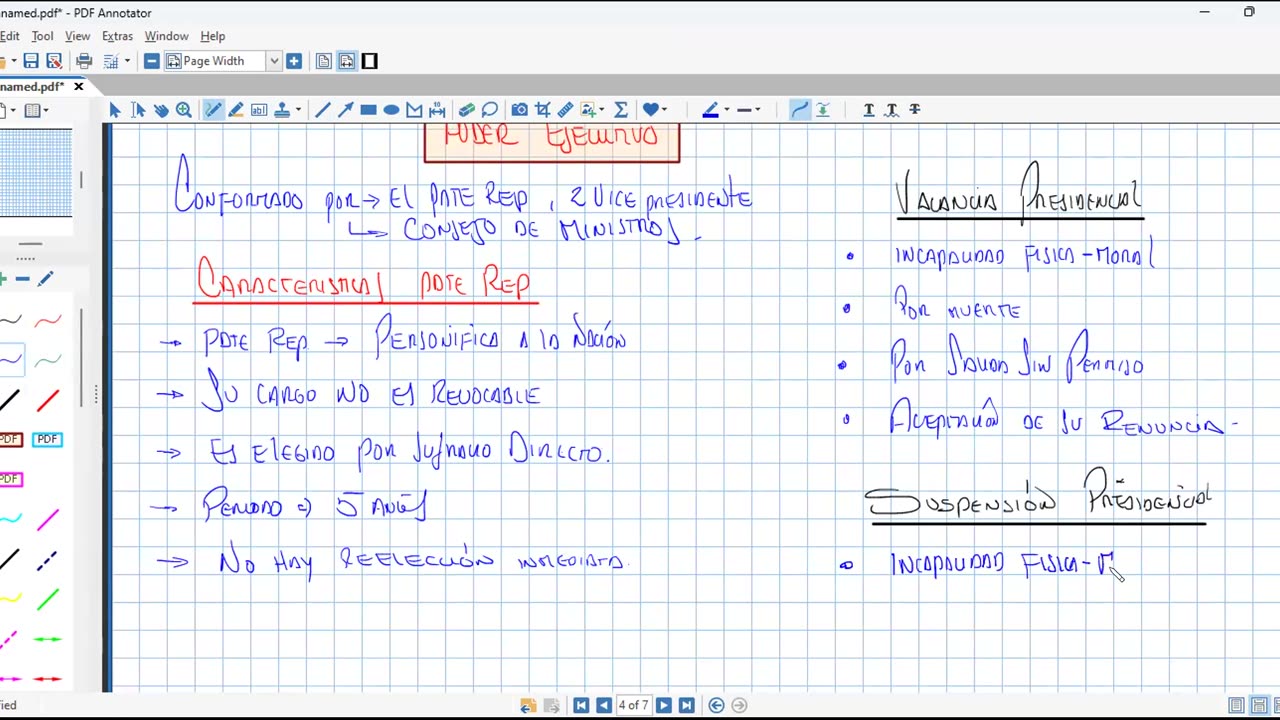 named.pdf* - PDF Annotator
Edit Tool View Extras Window Help
Page Width
named.pdf*
PODER EJECUTIVO
CONFORMADO POR → EL PDTE REP, 2 VICE PRESIDENTE
↳ CONSEJO DE MINISTROS.
CARACTERISTICAS PDTE REP
→ PDTE REP → PERSONIFICA A LA NACIÓN
→ SU CARGO NO ES REVOCABLE
→ ES ELEGIDO POR SUFRAGIO DIRECTO.
→ PERIODO ⇒ 5 AÑOS
→ NO HAY REELECCIÓN INMEDIATA.
VACANCIA PRESIDENCIAL
• INCAPACIDAD FISICA - MORAL
• POR MUERTE
• POR SALIDA SIN PERMISO
• ACEPTACIÓN DE SU RENUNCIA -
SUSPENSIÓN PRESIDENCIAL
• INCAPACIDAD FISICA - M
PDF PDF
PDF
4 of 7
fied